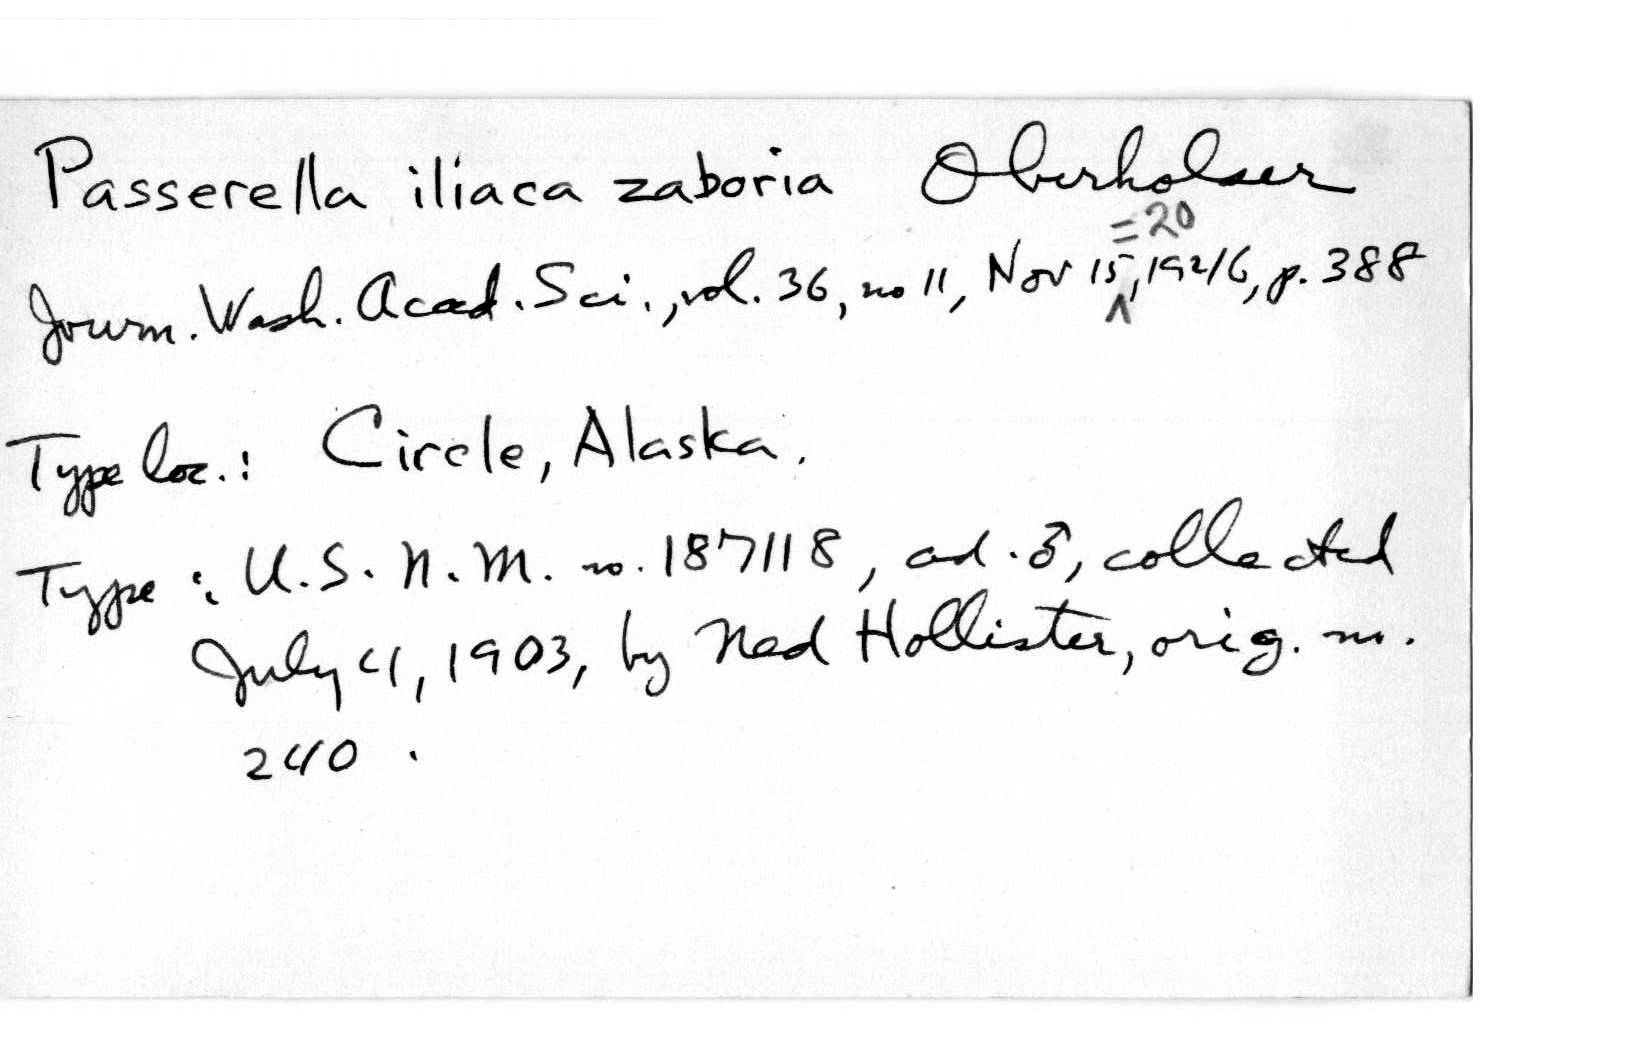 Passerella iliaca zaboria Oberholser
=20
Journ. Wash. Acad. Sci., vol. 36, no 11, Nov 15^, 1946, p. 388
Type loc.: Circle, Alaska.
Type: U.S.N.M. no. 187118, ad. ♂, collected
July 4, 1903, by Ned Hollister, orig. no.
240.